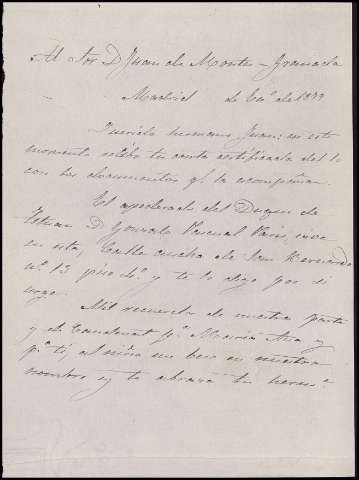 Al Sor D Juan de Montes - Granada
Madrid de En.º de 1899
Querido hermano Juan: en este
momento recibo tu carta certificada del 10
con los documentos q.e la acompañan.
El apoderado del Duque de
Tetuan D Gonzalo Pascual vive
en esta, Calle ancha de San Bernardo
n.º 13 piso 2.º y te lo digo por si
urge.
Mil recuerdos de nuestra parte
y de p.ª Maria Ana y
p.ª ti, al niño un beso en nuestro
nombre y te abraza tu herm.º